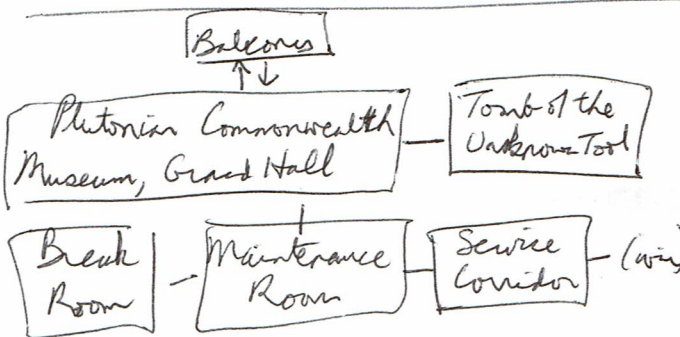 Balconies
Plutonian Commonwealth
Museum, Grand Hall
Tomb of the
Unknown Tool
Break
Room
Maintenance
Room
Service
Corridor